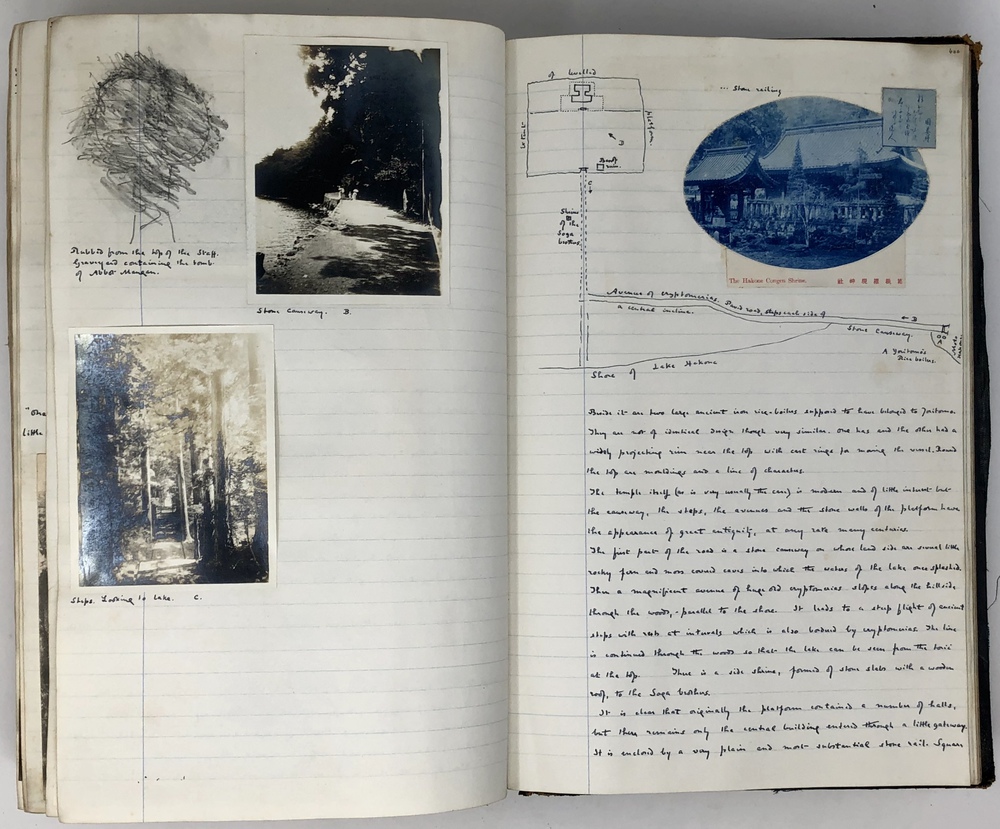 Rubbed from the top of the Staff.
Graveyard containing the tomb
of Abbot Mangan.
Stone Causeway. B.
Steps. Looking to lake. C.
"One
little
of levelled
Platform
... Stone railing
B
Roof
C
Shrine
of the
Soga
brothers.
The Hakone Gongen Shrine.
Avenue of cryptomerias. Paved road, steps each side of
a central incline.
← B
Stone Causeway.
A Yoritomo's
Rice boilers.
Shore of Lake Hakone
Beside it are two large ancient iron rice-boilers supposed to have belonged to Yoritomo.
They are not of identical design though very similar. One has and the other had a
widely projecting rim near the top with cast rings for moving the vessel. Round
the top are mouldings and a line of characters.
The temple itself (as is very usually the case) is modern and of little interest but
the causeway, the steps, the avenues and the stone walls of the platform have
the appearance of great antiquity, at any rate many centuries.
The first part of the road is a stone causeway on whose land side are several little
rocky fern and moss covered caves into which the waters of the lake once splashed.
Then a magnificent avenue of huge old cryptomerias slopes along the hillside
through the woods, - parallel to the shore. It leads to a steep flight of ancient
steps with rests at intervals which is also bordered by cryptomerias. The line
is continued through the woods so that the lake can be seen from the torii
at the top. There is a side shrine, formed of stone slabs with a wooden
roof, to the Soga brothers.
It is clear that originally the platform contained a number of halls,
but there remains only the central building entered through a little gateway.
It is enclosed by a very plain and most substantial stone rail. Square